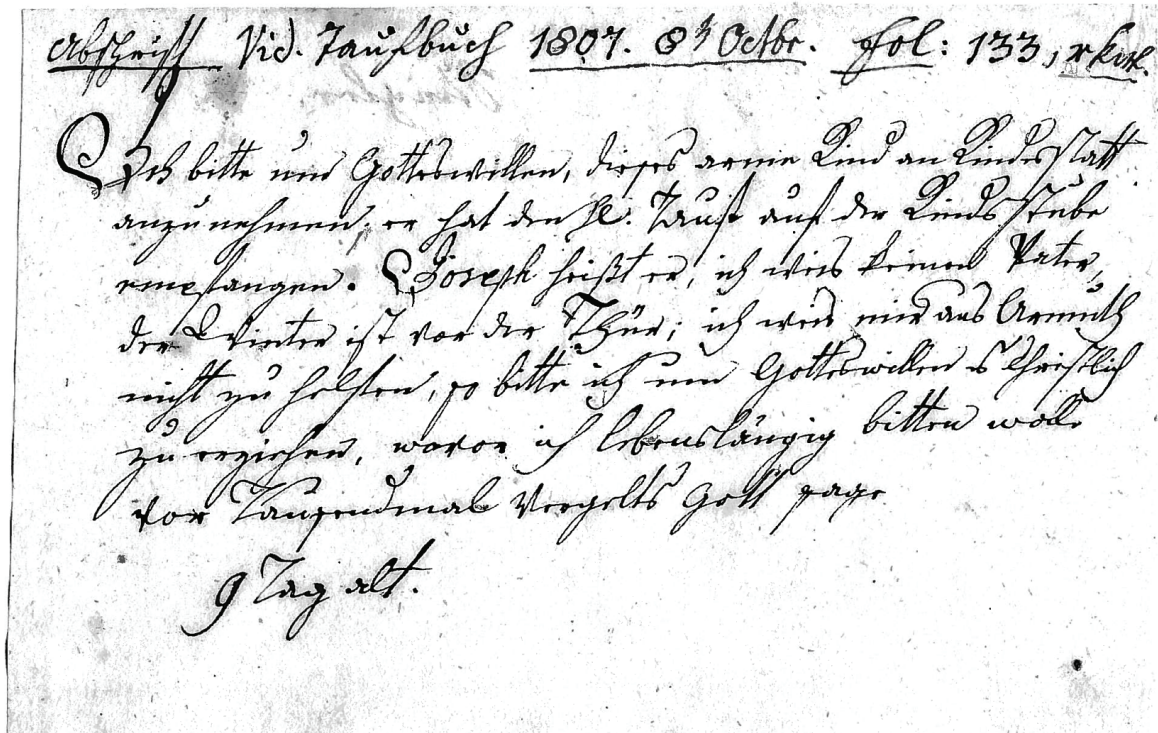 Abschrift Vid. Taufbuch 1807. 8br Octbr. Fol: 133,
Ich bitte um Gotteswillen, dieses arme Kind an Kindesstatt
anzunehmen, er hat den hl. Tauf auf der Kindsstube
empfangen. Joseph heißt er, ich weis keinen Vater,
der Winter ist vor der Thür; ich weis mir aus Armuth
nicht zu helfen, so bitte ich um Gotteswillen es Christlich
zu erziehen, wovor ich lebenslängig bitten wolle
vor Tausendmal Vergelts Gott sage
9 Tag alt.